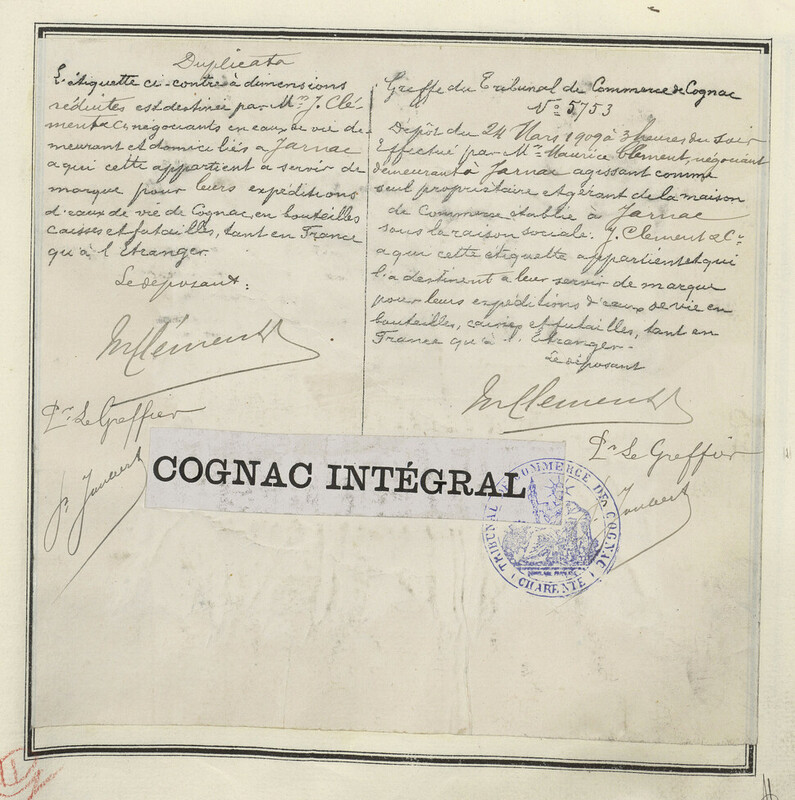 Duplicata
L'étiquette ci-contre à dimensions
réduites est destinée par Mrs J. Clé-
ment & Cie, négociants en eaux de vie de-
meurant et domiciliés à Jarnac
a qui cette appartient a servir de
marque pour leurs expéditions
d'eaux de vie de Cognac, en bouteilles
caisses et futailles, tant en France
qu'à l'Etranger.
Le déposant:
M Clément
Pr Le Greffier
P. Joubert
Greffe du Tribunal de Commerce de Cognac
No 5753
Dépôt du 24 Mars 1909 à 3 heures du soir
Effectué par Mr Maurice Clement, négociant
demeurant à Jarnac agissant comme
seul propriétaire et gérant de la maison
de Commerce établie à Jarnac
sous la raison sociale: J. Clement & Cie
a qui cette étiquette appartient et qui
l'a destinent a leur servir de marque
pour leurs expéditions d'eaux de vie en
bouteilles, caisses et futailles, tant en
France qu'à l'Etranger.
Le déposant
M Clement
Pr Le Greffier
Joubert
COGNAC INTÉGRAL
TRIBUNAL DE COMMERCE DE COGNAC
(CHARENTE)